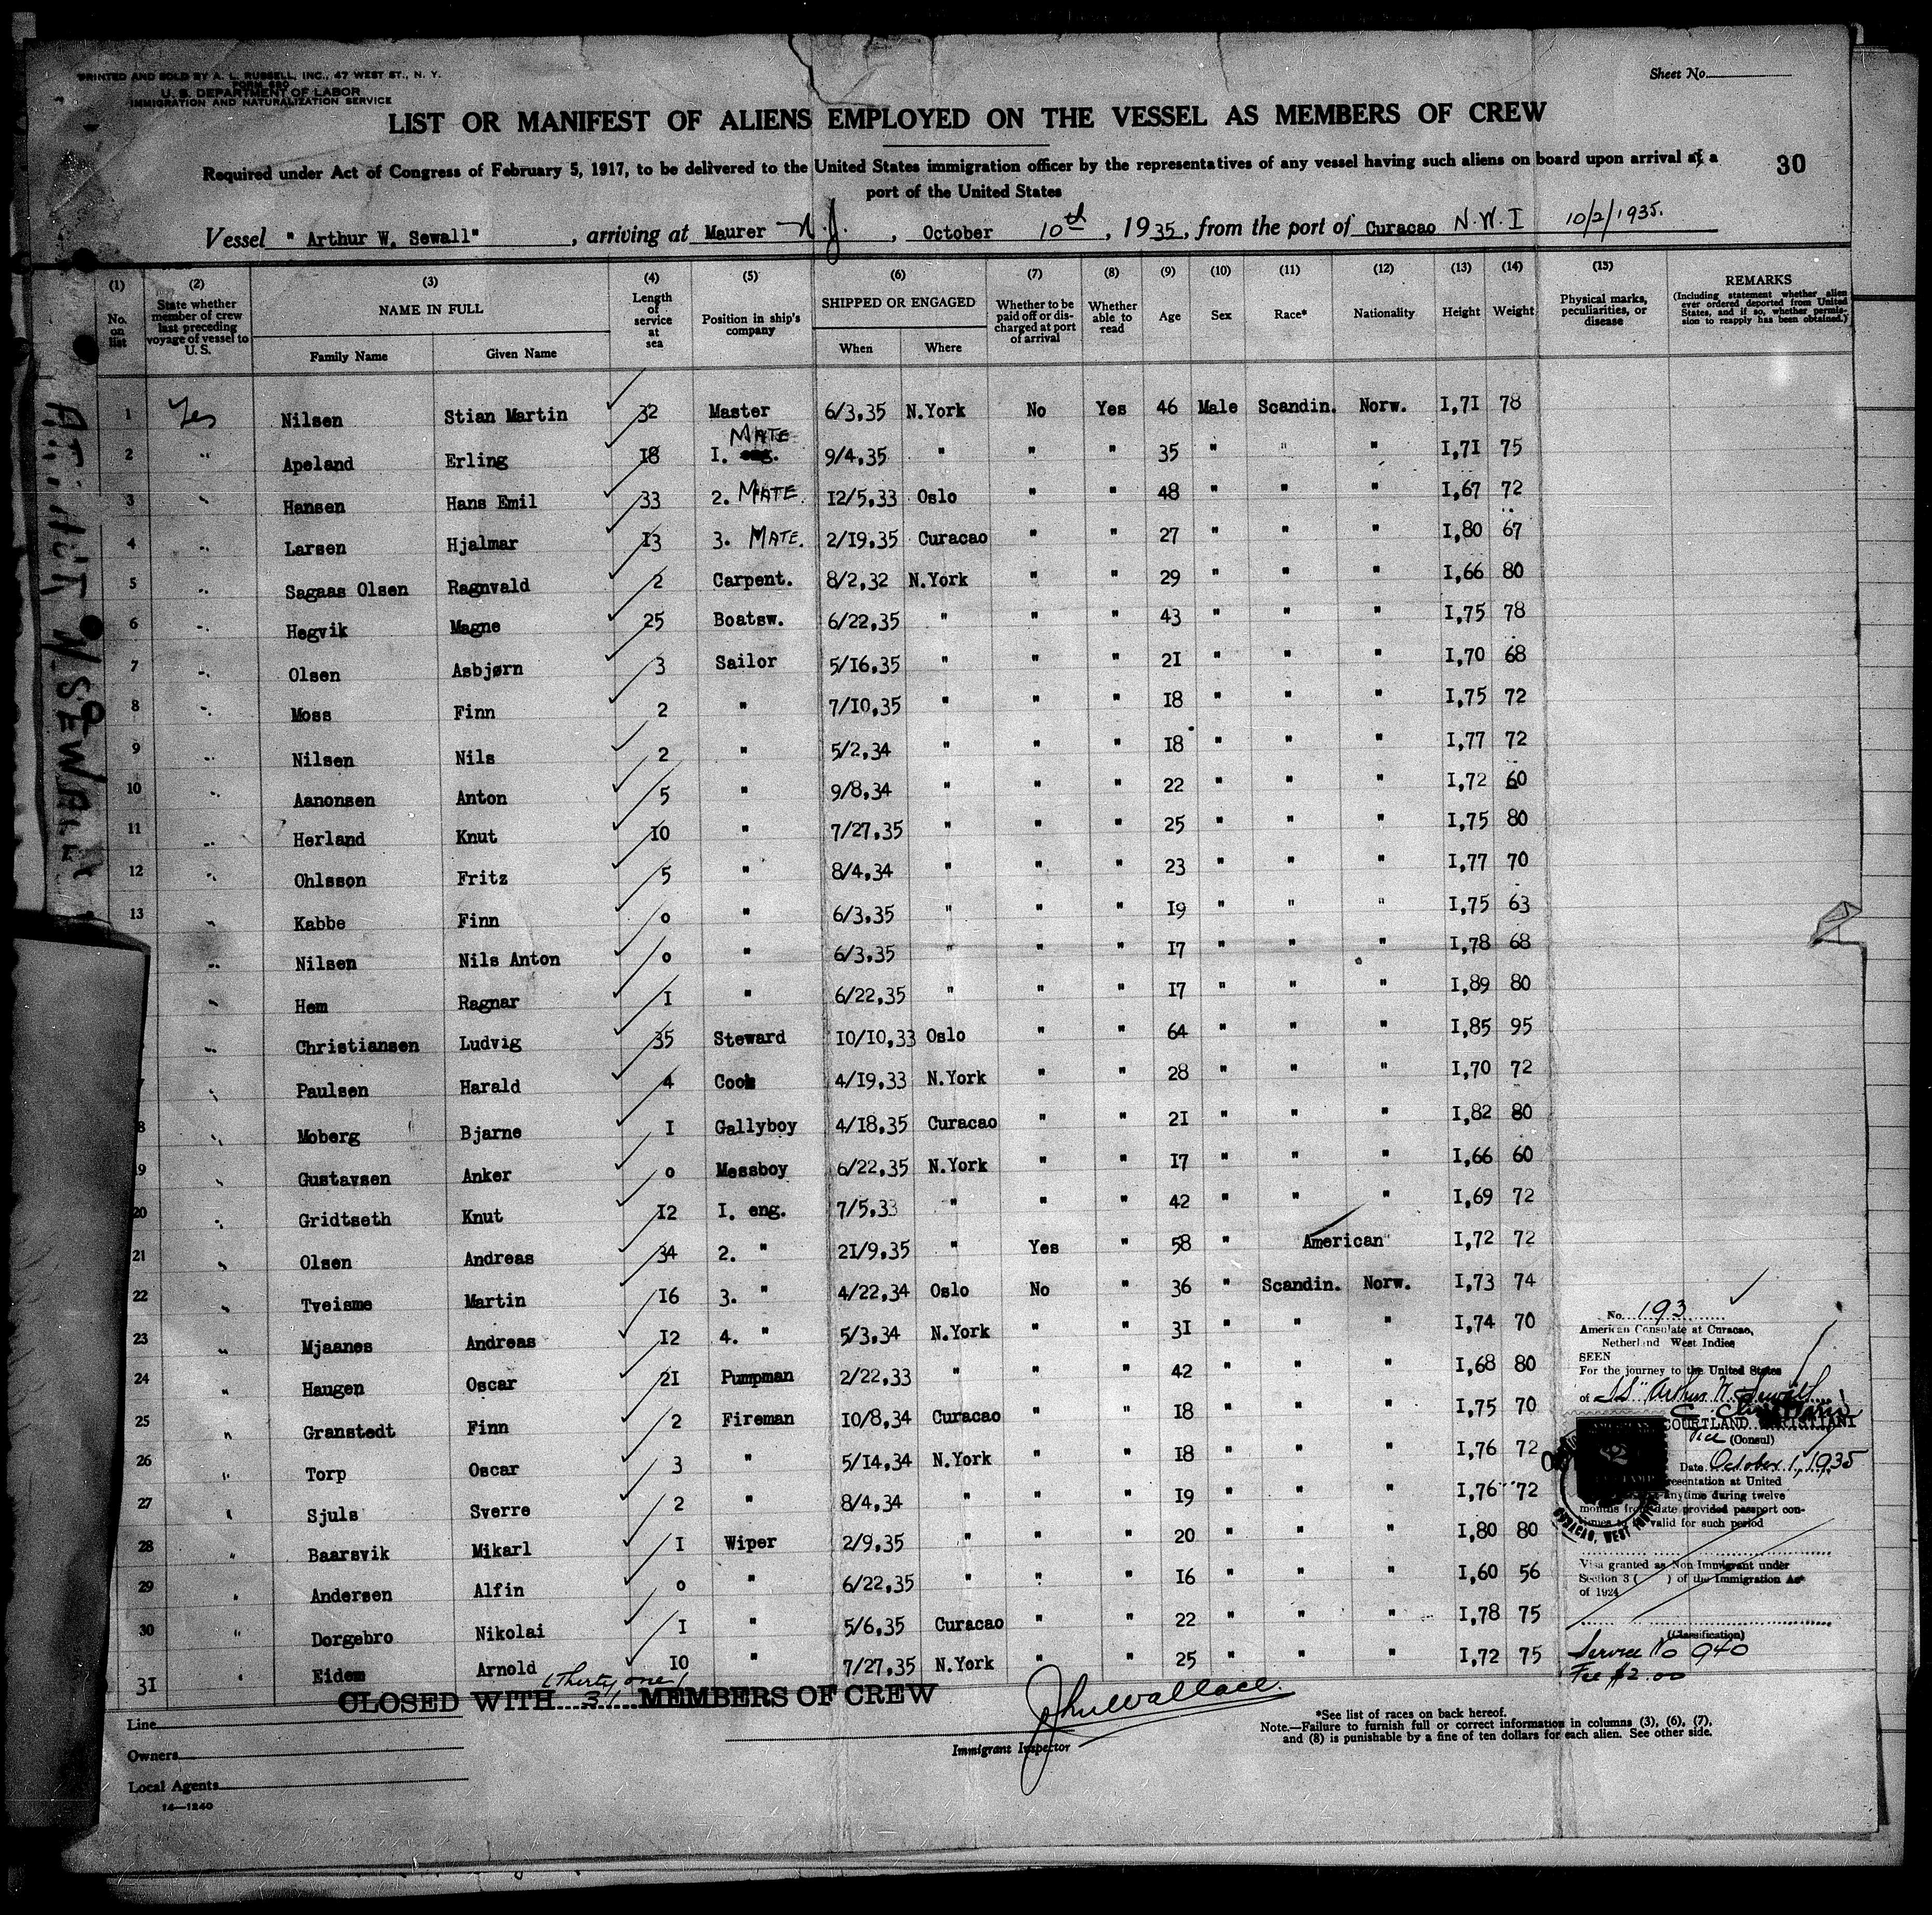 PRINTED AND SOLD BY A. L. RUSSELL, INC., 47 WEST ST., N. Y.
FORM 680
U. S. DEPARTMENT OF LABOR
IMMIGRATION AND NATURALIZATION SERVICE
Sheet No.
LIST OR MANIFEST OF ALIENS EMPLOYED ON THE VESSEL AS MEMBERS OF CREW
Required under Act of Congress of February 5, 1917, to be delivered to the United States immigration officer by the representatives of any vessel having such aliens on board upon arrival at a
port of the United States
30
Vessel " Arthur W. Sewall" , arriving at Maurer N.J. , October 10th , 1935, from the port of Curacao N.W.I 10/2/1935.
(1) (2) (3) (4) (5) (6) (7) (8) (9) (10) (11) (12) (13) (14) (15)
No. on list
State whether member of crew last preceding voyage of vessel to U. S.
NAME IN FULL
Family Name
Given Name
Length of service at sea
Position in ship's company
SHIPPED OR ENGAGED
When
Where
Whether to be paid off or discharged at port of arrival
Whether able to read
Age
Sex
Race*
Nationality
Height
Weight
Physical marks, peculiarities, or disease
REMARKS
(Including statement whether alien ever ordered deported from United States, and if so, whether permission to reapply has been obtained.)
1 Yes Nilsen Stian Martin 32 Master 6/3.35 N.York No Yes 46 Male Scandin. Norw. I,71 78
2 " Apeland Erling 18 I. eng. MATE 9/4.35 " " " 35 " " " I,71 75
3 " Hansen Hans Emil 33 2. MATE. 12/5.33 Oslo " " 48 " " " I,67 72
4 " Larsen Hjalmar 13 3. MATE. 2/19.35 Curacao " " 27 " " " I,80 67
5 " Sagaas Olsen Ragnvald 2 Carpent. 8/2,32 N.York " " 29 " " " I,66 80
6 " Hegvik Magne 25 Boatsw. 6/22,35 " " " 43 " " " I,75 78
7 " Olsen Asbjørn 3 Sailor 5/16.35 " " " 21 " " " I,70 68
8 " Moss Finn 2 " 7/10,35 " " " 18 " " " I,75 72
9 " Nilsen Nils 2 " 5/2,34 " " " 18 " " " I,77 72
10 " Aanonsen Anton 5 " 9/8,34 " " " 22 " " " I,72 60
11 " Herland Knut 10 " 7/27.35 " " " 25 " " " I,75 80
12 " Ohlsson Fritz 5 " 8/4,34 " " " 23 " " " I,77 70
13 " Kabbe Finn o " 6/3.35 " " " 19 " " " I,75 63
" Nilsen Nils Anton o " 6/3.35 " " " 17 " " " I,78 68
" Hem Ragnar I " 6/22,35 " " " 17 " " " I,89 80
" Christiansen Ludvig 35 Steward 10/10,33 Oslo " " 64 " " " I,85 95
7 " Paulsen Harald 4 Cook 4/19.33 N.York " " 28 " " " I,70 72
8 " Moberg Bjarne I Gallyboy 4/18.35 Curacao " " 21 " " " I,82 80
19 " Gustavsen Anker o Messboy 6/22,35 N.York " " 17 " " " I,66 60
20 " Gridtseth Knut 12 I. eng. 7/5.33 " " " 42 " " " I,69 72
21 " Olsen Andreas 34 2. " 21/9.35 " Yes " 58 " American" I,72 72
22 " Tveisme Martin 16 3. " 4/22,34 Oslo No " 36 " Scandin. Norw. I,73 74
23 " Mjaanes Andreas 12 4. " 5/3.34 N.York " " 31 " " " I,74 70
24 " Haugen Oscar 21 Pumpman 2/22.33 " " " 42 " " " I,68 80
25 " Granstedt Finn 2 Fireman 10/8,34 Curacao " " 18 " " " I,75 70
26 " Torp Oscar 3 " 5/14,34 N.York " " 18 " " " I,76 72
27 " Sjuls Sverre 2 " 8/4,34 " " " 19 " " " I,76 72
28 " Baarsvik Mikarl I Wiper 2/9.35 " " " 20 " " " I,80 80
29 " Andersen Alfin o " 6/22,35 " " " 16 " " " I,60 56
30 " Dorgebro Nikolai I " 5/6.35 Curacao " " 22 " " " I,78 75
31 " Eidem Arnold 10 " 7/27.35 N.York " " 25 " " " I,72 75
(Thirty one)
CLOSED WITH 31 MEMBERS OF CREW
Line
Owners
Local Agents
14—1240
Immigrant Inspector
*See list of races on back hereof.
Note.—Failure to furnish full or correct information in columns (3), (6), (7),
and (8) is punishable by a fine of ten dollars for each alien. See other side.
No. 193
American Consulate at Curacao,
Netherland West Indies
SEEN
For the journey to the United States
of SS "Arthur W. Sewall
COURTLAND CHRISTIANI
Vice (Consul)
Date October 1, 1935
presentation at United
anytime during twelve
months from date provided passport con-
tinues to be valid for such period
CURACAO, WEST INDIES
Visa granted as Non-Immigrant under
Section 3 ( ) of the Immigration Act
of 1924
(Classification)
Service No 940
Fee $2.00
ARTHUR W. SEWALL